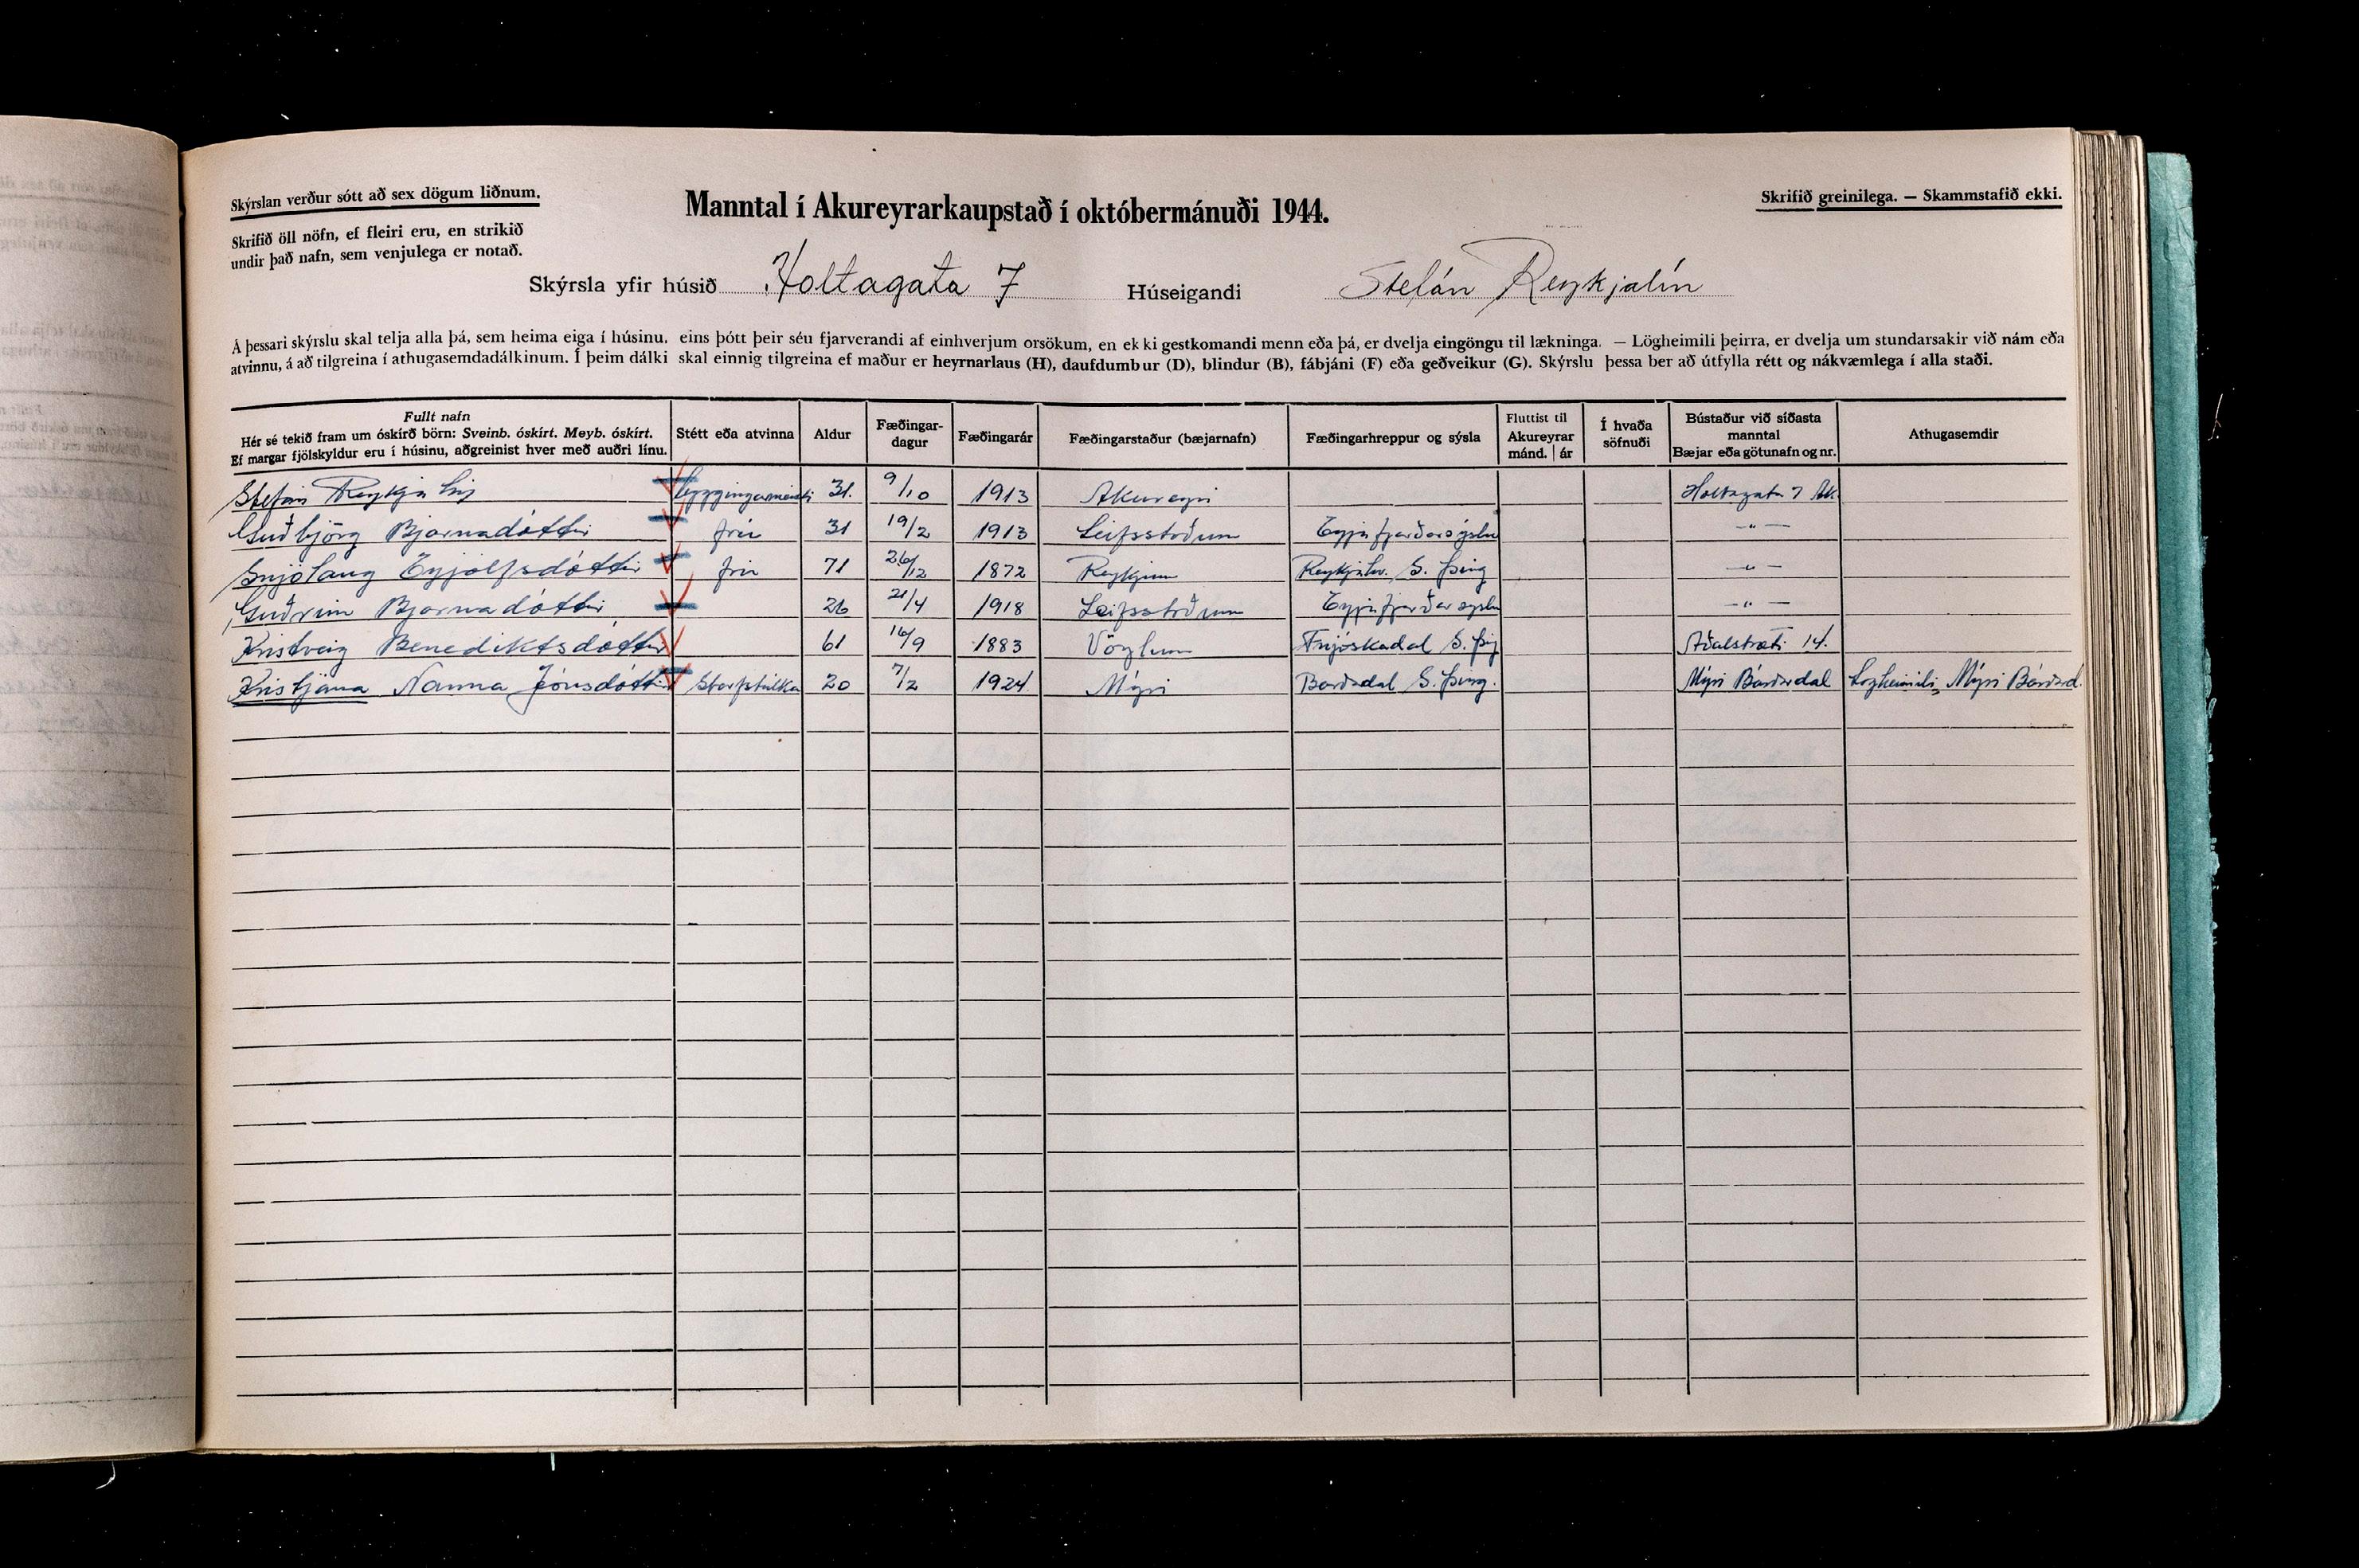 Skýrslan verður sótt að sex dögum liðnum.
Skrifið öll nöfn, ef fleiri eru, en strikið
undir það nafn, sem venjulega er notað.
Manntal í Akureyrarkaupstað í októbermánuði 1944.
Skrifið greinilega. — Skammstafið ekki.
Skýrsla yfir húsið Holtagata 7 Húseigandi Stefán Reykjalín
Á þessari skýrslu skal telja alla þá, sem heima eiga í húsinu, eins þótt þeir séu fjarverandi af einhverjum orsökum, en ekki gestkomandi menn eða þá, er dvelja eingöngu til lækninga. — Lögheimili þeirra, er dvelja um stundarsakir við nám eða
atvinnu, á að tilgreina í athugasemdadálkinum. Í þeim dálki skal einnig tilgreina ef maður er heyrnarlaus (H), daufdumbur (D), blindur (B), fábjáni (F) eða geðveikur (G). Skýrslu þessa ber að útfylla rétt og nákvæmlega í alla staði.
Fullt nafn
Hér sé tekið fram um óskírð börn: Sveinb. óskírt. Meyb. óskírt.
Ef margar fjölskyldur eru í húsinu, aðgreinist hver með auðri línu.
Stétt eða atvinna
Aldur
Fæðingar-
dagur
Fæðingarár
Fæðingarstaður (bæjarnafn)
Fæðingarhreppur og sýsla
Fluttist til
Akureyrar
mánd. | ár
Í hvaða
söfnuði
Bústaður við síðasta
manntal
Bæjar eða götunafn og nr.
Athugasemdir
Stefán Reykjalín byggingameistari 31. 9/10 1913 Akureyri Holtagata 7 Ak.
Guðbjörg Bjarnadóttir frú 31 19/2 1913 Leifsstöðum Eyjafjarðarsýslu —"—
Snjólaug Eyjólfsdóttir frú 71 26/12 1872 Reykjum Reykjahv. S. Þing —"—
Guðrún Bjarnadóttir 26 21/4 1918 Leifsstöðum Eyjafjarðarsýslu —"—
Kristveig Benediktsdóttir 61 16/9 1883 Vöglum Fnjóskadal S. Þing Aðalstræti 14.
Kristjána Nanna Jónsdóttir Starfstúlka 20 7/2 1924 Mýri Bárðdal S. Þing. Mýri Bárðardal Lögheimili, Mýri Bárðard.